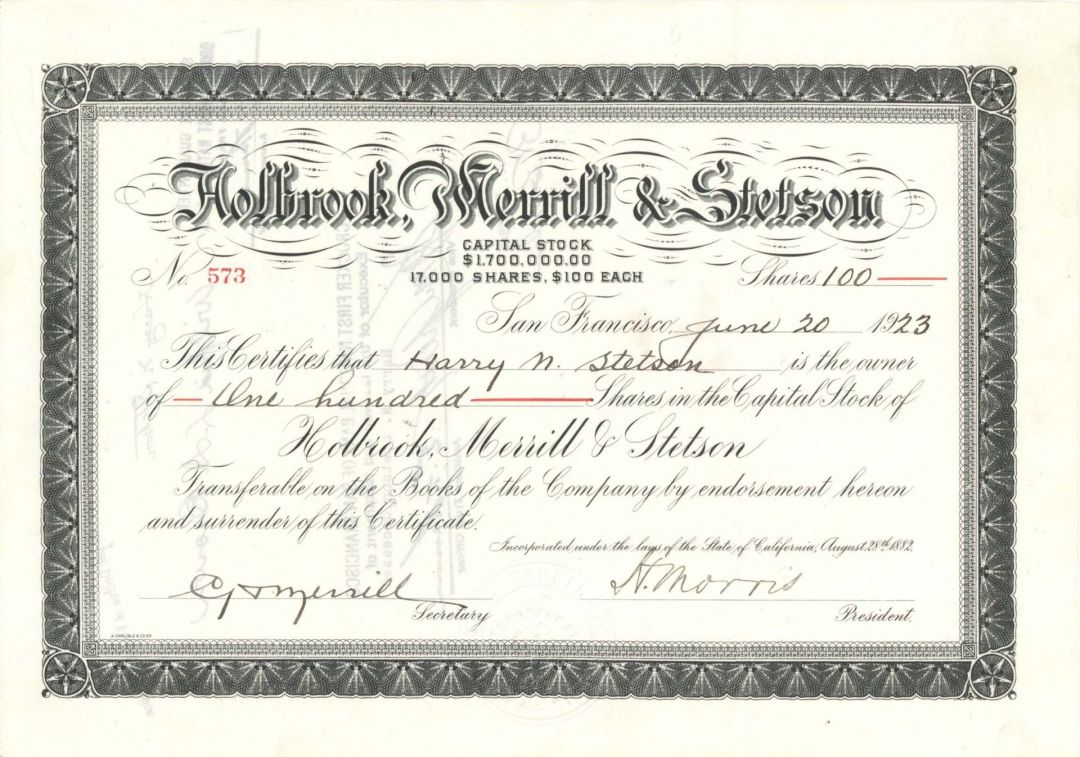 Holbrook, Merrill & Stetson
CAPITAL STOCK
$1,700,000.00
17,000 SHARES, $100 EACH
No. 573 Shares 100
San Francisco, June 20 1923
This Certifies that Harry N. Stetson is the owner
of One hundred Shares in the Capital Stock of
Holbrook, Merrill & Stetson
Transferable on the Books of the Company by endorsement hereon
and surrender of this Certificate.
Incorporated under the laws of the State of California, August 28th 1882.
Merrill H. Morris
Secretary President.
A. CARLISLE & CO. S.F.